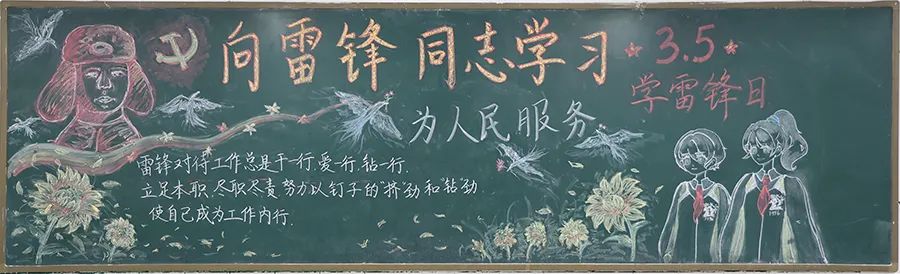 向雷锋同志学习
3.5
学雷锋日
为人民服务
雷锋对待工作总是干一行、爱一行、钻一行、
立足本职、尽职尽责,努力以钉子的“挤”劲和“钻”劲,
使自己成为工作内行.